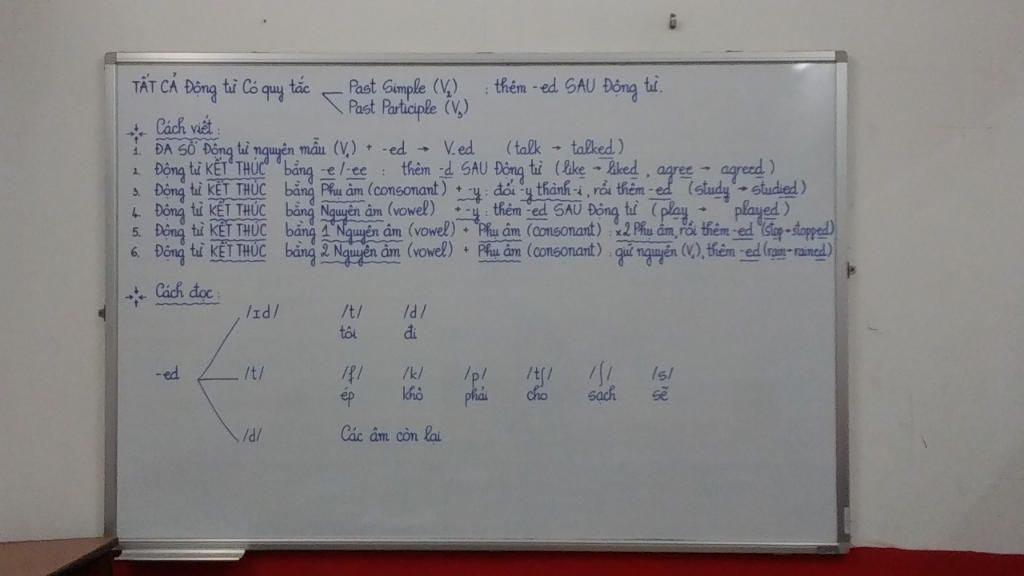 TẤT CẢ Động từ Có quy tắc Past Simple (V₂) : thêm -ed SAU Động từ.
Past Participle (V₃)
Cách viết:
1. ĐA SỐ Động từ nguyên mẫu (V₁) + -ed → V.ed (talk → talked)
2. Động từ KẾT THÚC bằng -e/-ee : thêm -d SAU Động từ (like → liked, agree → agreed)
3. Động từ KẾT THÚC bằng Phụ âm (consonant) + -y : đổi -y thành -i, rồi thêm -ed (study → studied)
4. Động từ KẾT THÚC bằng Nguyên âm (vowel) + -y : thêm -ed SAU Động từ (play → played)
5. Động từ KẾT THÚC bằng 1 Nguyên âm (vowel) + Phụ âm (consonant) : x2 Phụ âm, rồi thêm -ed (stop → stopped)
6. Động từ KẾT THÚC bằng 2 Nguyên âm (vowel) + Phụ âm (consonant) : giữ nguyên (V₁), thêm -ed (rain → rained)
Cách đọc:
/ɪd/ /t/ /d/
tôi đi
-ed /t/ /f/ /k/ /p/ /tʃ/ /ʃ/ /s/
ép khô phải cho sạch sẽ
/d/ Các âm còn lại